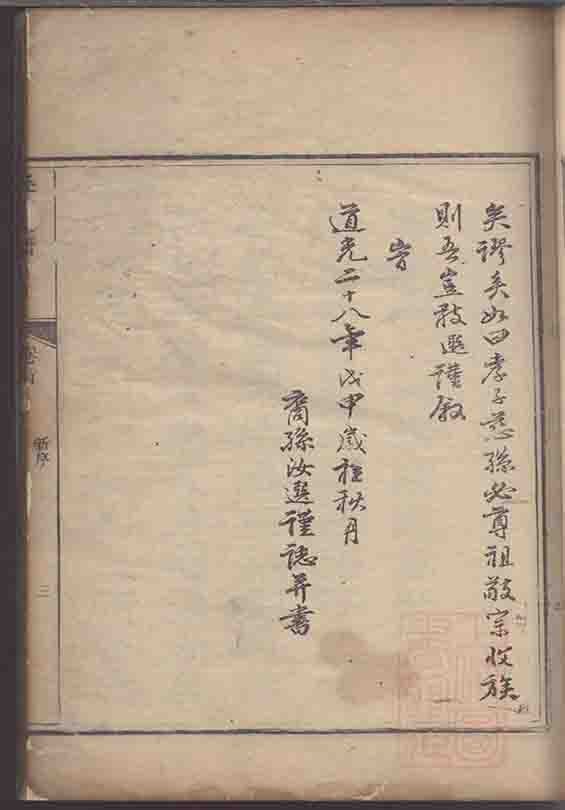 矣謬矣如曰孝子慈孫必尊祖敬宗收族
則吾豈敢選謹敘
旹
道光二十八年戊申歲桂秋月
裔孫汝選謹誌并書
新序
三